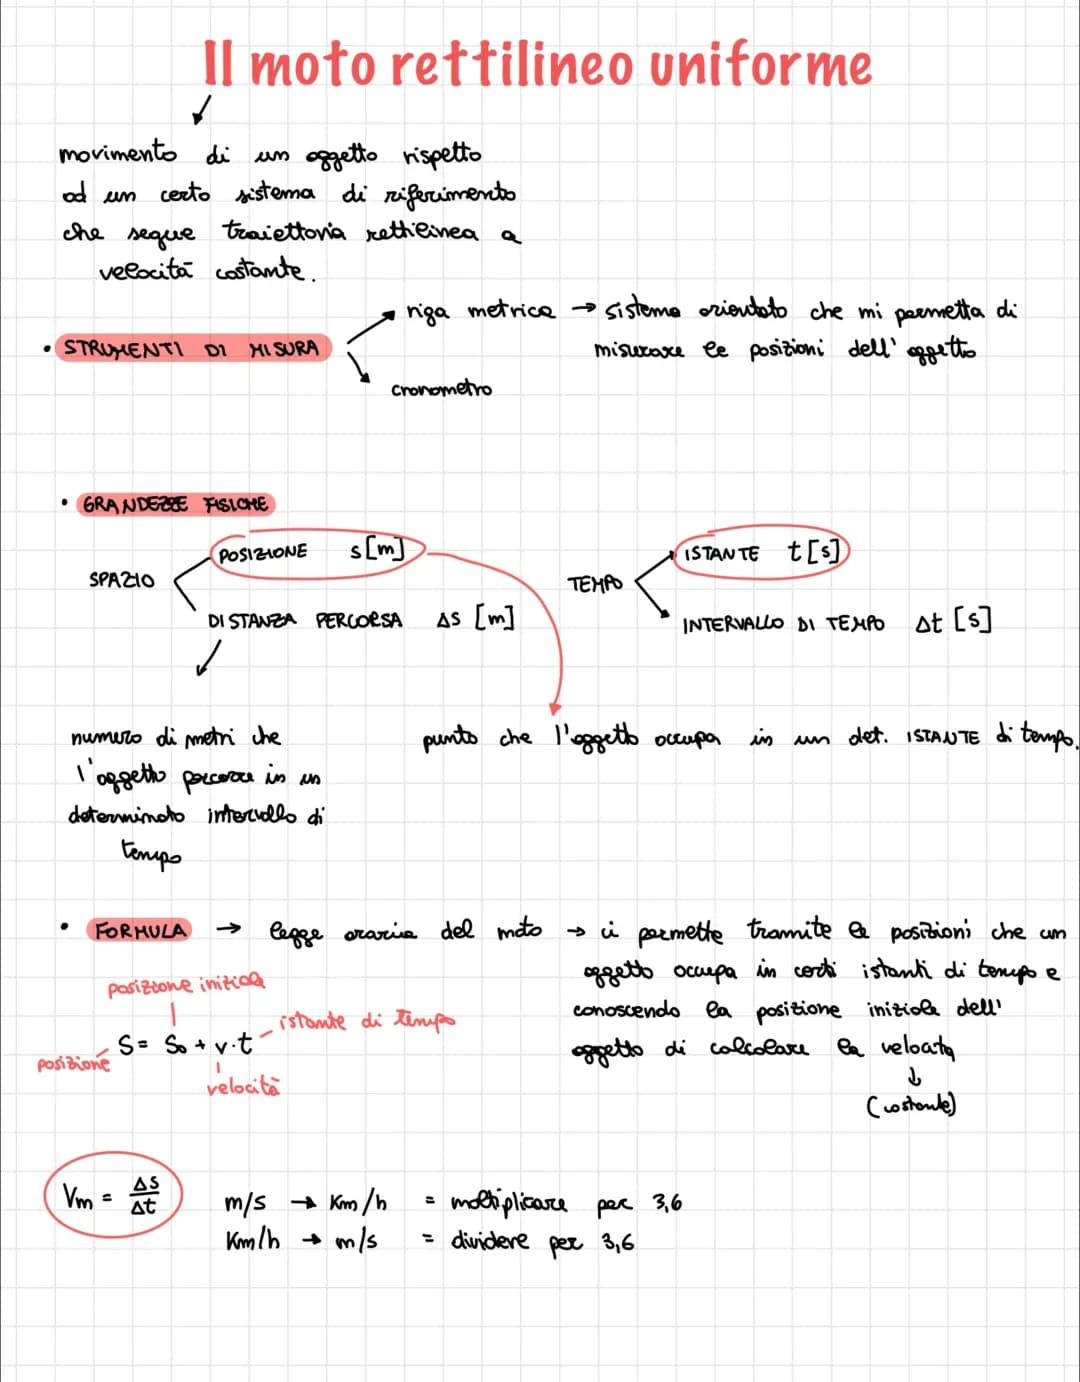 Il moto rettilineo uniforme
movimento di un oggetto rispetto
ad un certo sistema di riferimento
che segue traiettoria rettilinea a
velocità costante.
• STRUMENTI DI MISURA
riga metrica → sistema orientato che mi permetta di
misurare le posizioni dell' oggetto
cronometro
• GRANDEZZE FISICHE
SPAZIO
POSIZIONE s[m]
DISTANZA PERCORSA Δs [m]
TEMPO
ISTANTE t[s]
INTERVALLO DI TEMPO Δt [s]
numero di metri che
l'oggetto percorre in un
determinato intervallo di
tempo
punto che l'oggetto occupa in un det. ISTANTE di tempo.
• FORMULA → legge oraria del moto → ci permette tramite le posizioni che un
oggetto occupa in certi istanti di tempo e
conoscendo la posizione iniziale dell'
oggetto di calcolare la velocità
↓
(costante)
posizione iniziale
S = S₀ + v·t
istante di tempo
posizione
velocità
Vm = Δs/Δt
m/s → Km/h = moltiplicare per 3,6
Km/h → m/s = dividere per 3,6